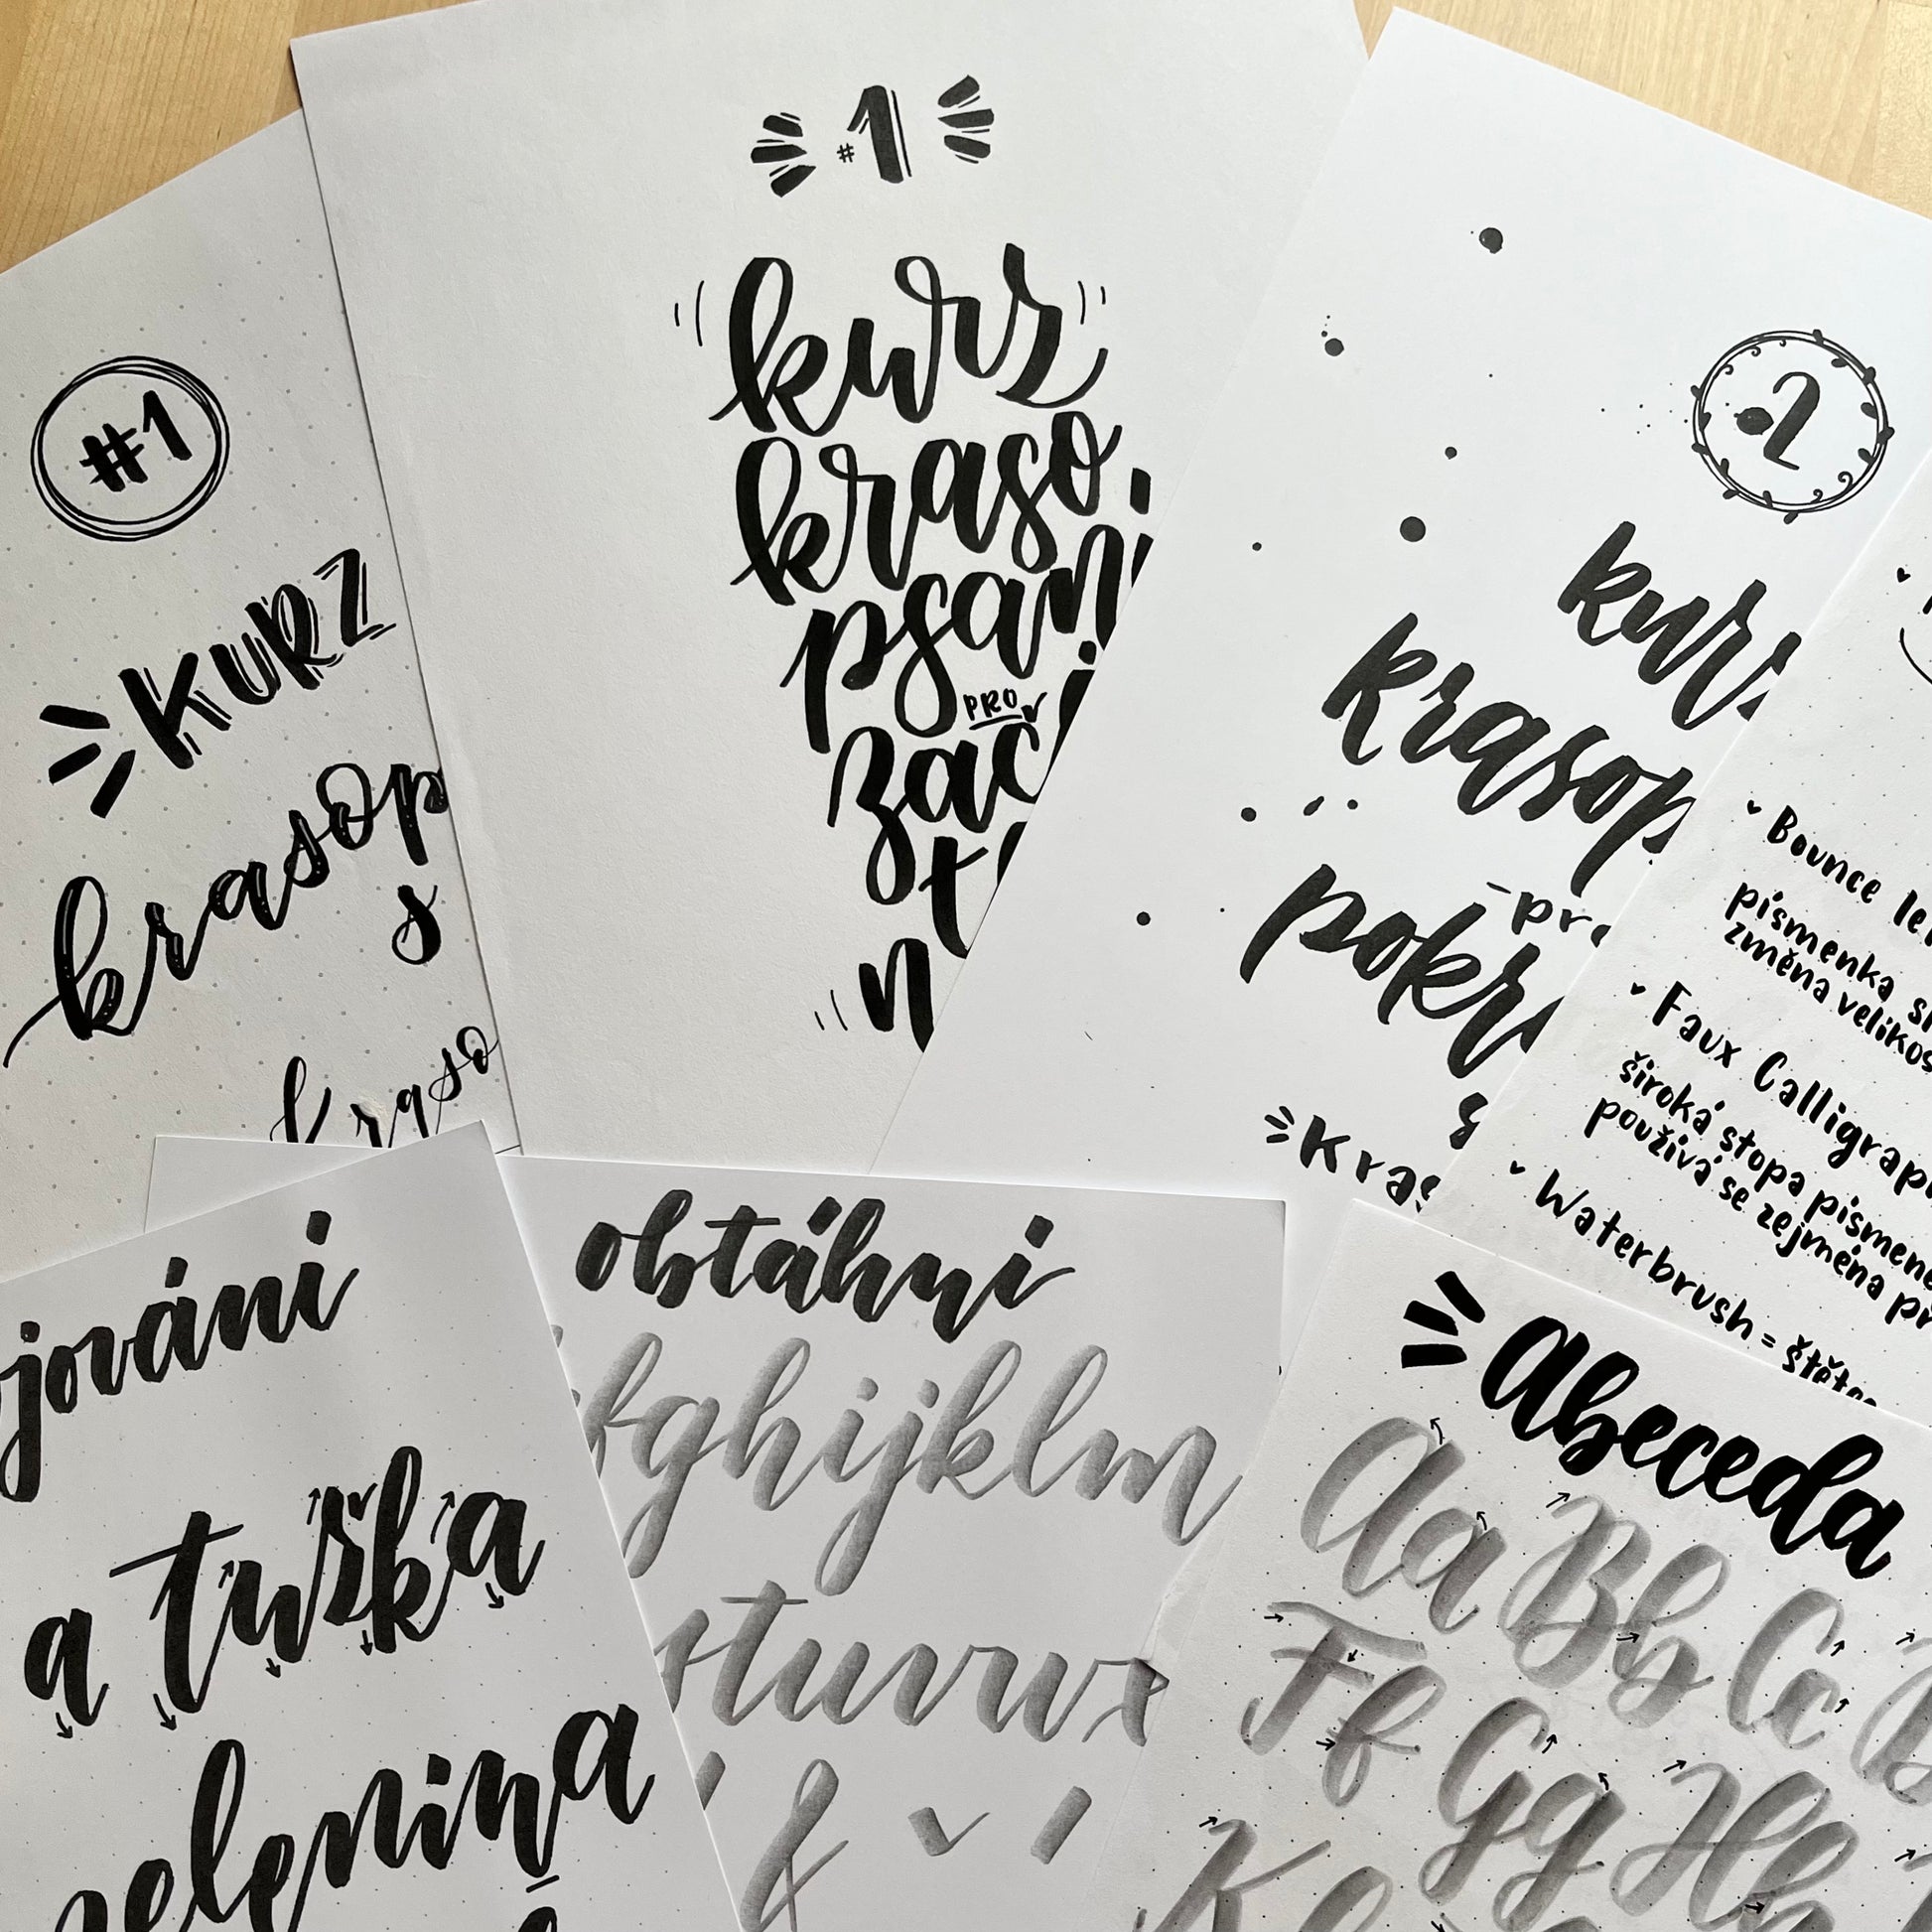 #1
KURZ
krasop
s
kraso
#1
kurz
kraso.
psaní
PRO
zač
t
n
2
kurz
krasop
pokr
s
kras
Bounce le
písmenka s
změna velikos
Faux Calligrap
široká stopa písmene
používá se zejména př
Waterbrush = štěte
jování
a tuška
zelenina
obtáhni
efghijklm
stuvwx
&
abeceda
Aa Bb Cc
Ff Gg Hh
K